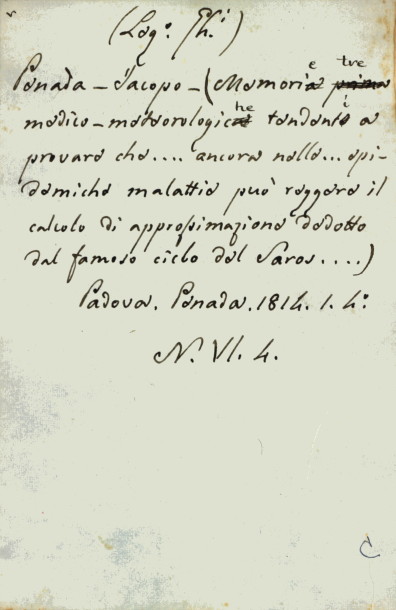 (Leg.º Ph.i)
Penada - Jacopo - (Memorie tre
medico-meteorologiche tendenti a
provare che.... ancora nelle... epi-
demiche malattie può reggere il
calcolo di approssimazione dedotto
dal famoso ciclo del Saros....)
Padova. Penada. 1814. 1. 4º
N. VI. 4.
C